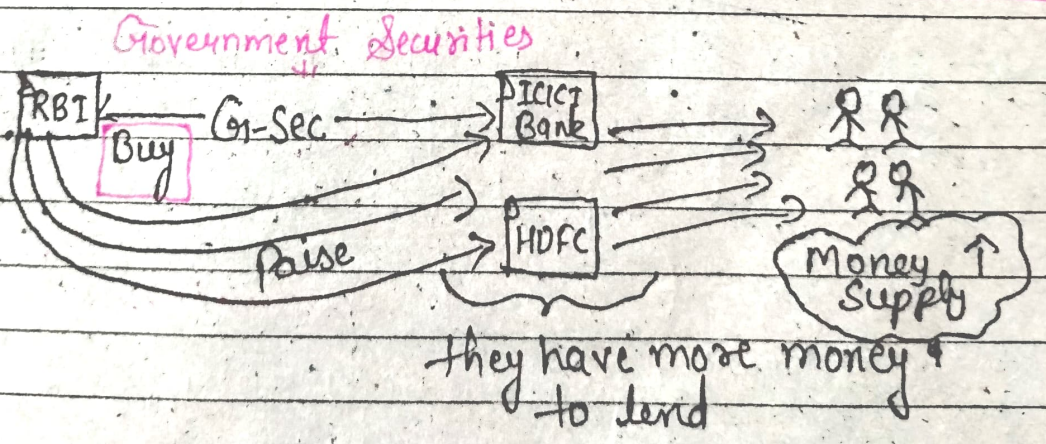 Government Securities
RBI
G-Sec
ICICI
Bank
Buy
Paise
HDFC
Money ↑
Supply
they have more money
to lend